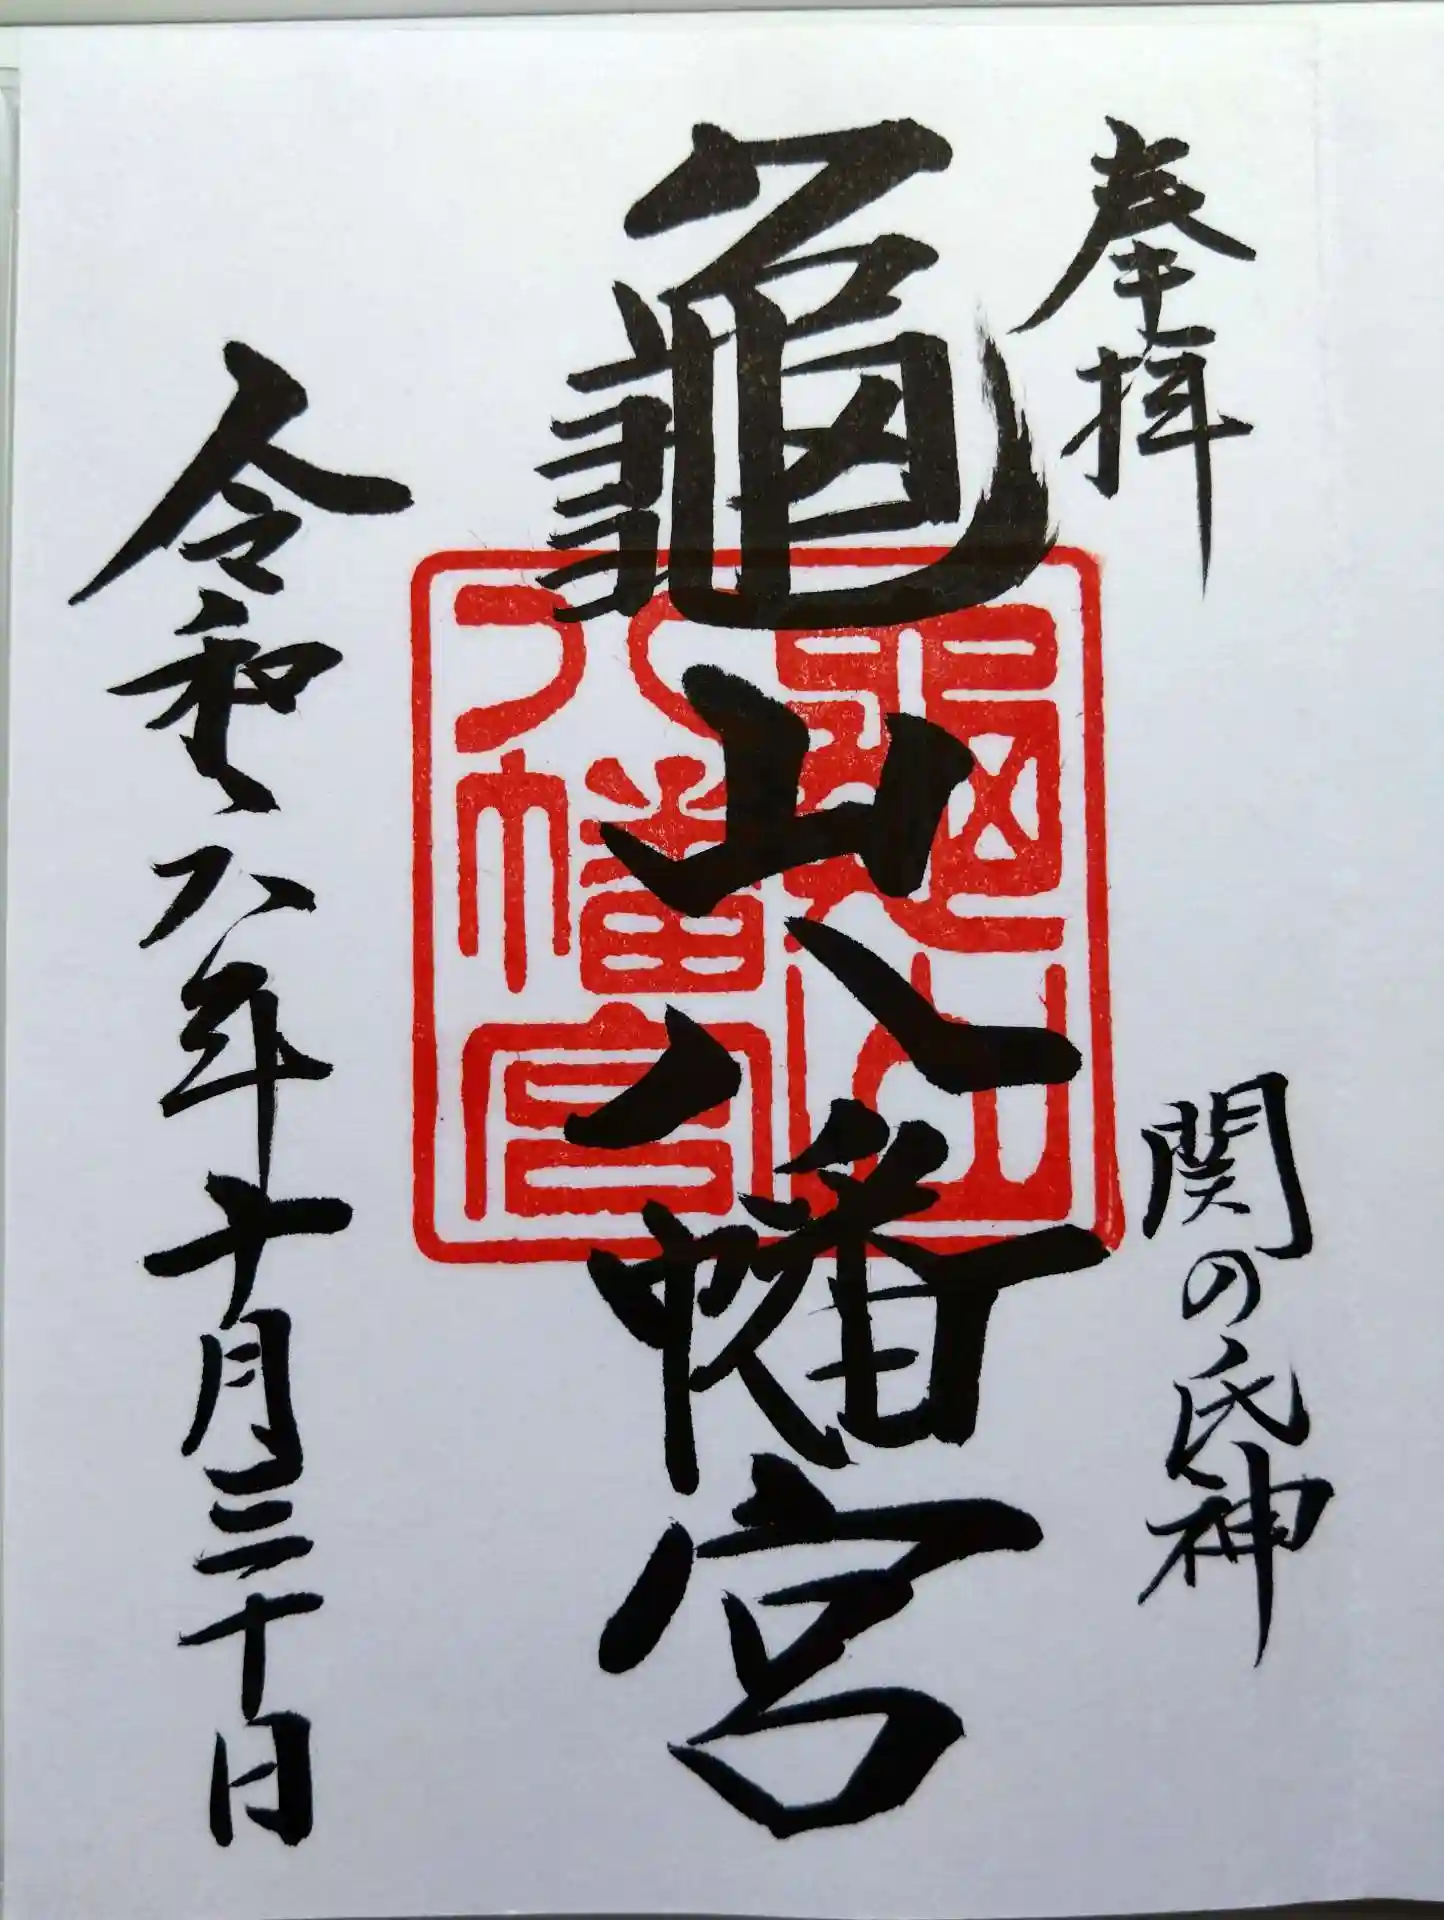 奉拝
関の氏神
龜山八幡宮
龜山
八幡宮
令和六年十月三十日